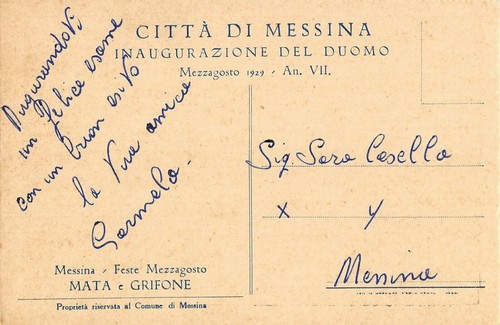 CITTÀ DI MESSINA
INAUGURAZIONE DEL DUOMO
Mezzagosto 1929 - An. VII.
Augurandoti
un felice esame
con un buon esito
la tua amica
Carmela.
Sig. Sara Casella
x y
Messina
Messina - Feste Mezzagosto
MATA e GRIFONE
Proprietà riservata al Comune di Messina